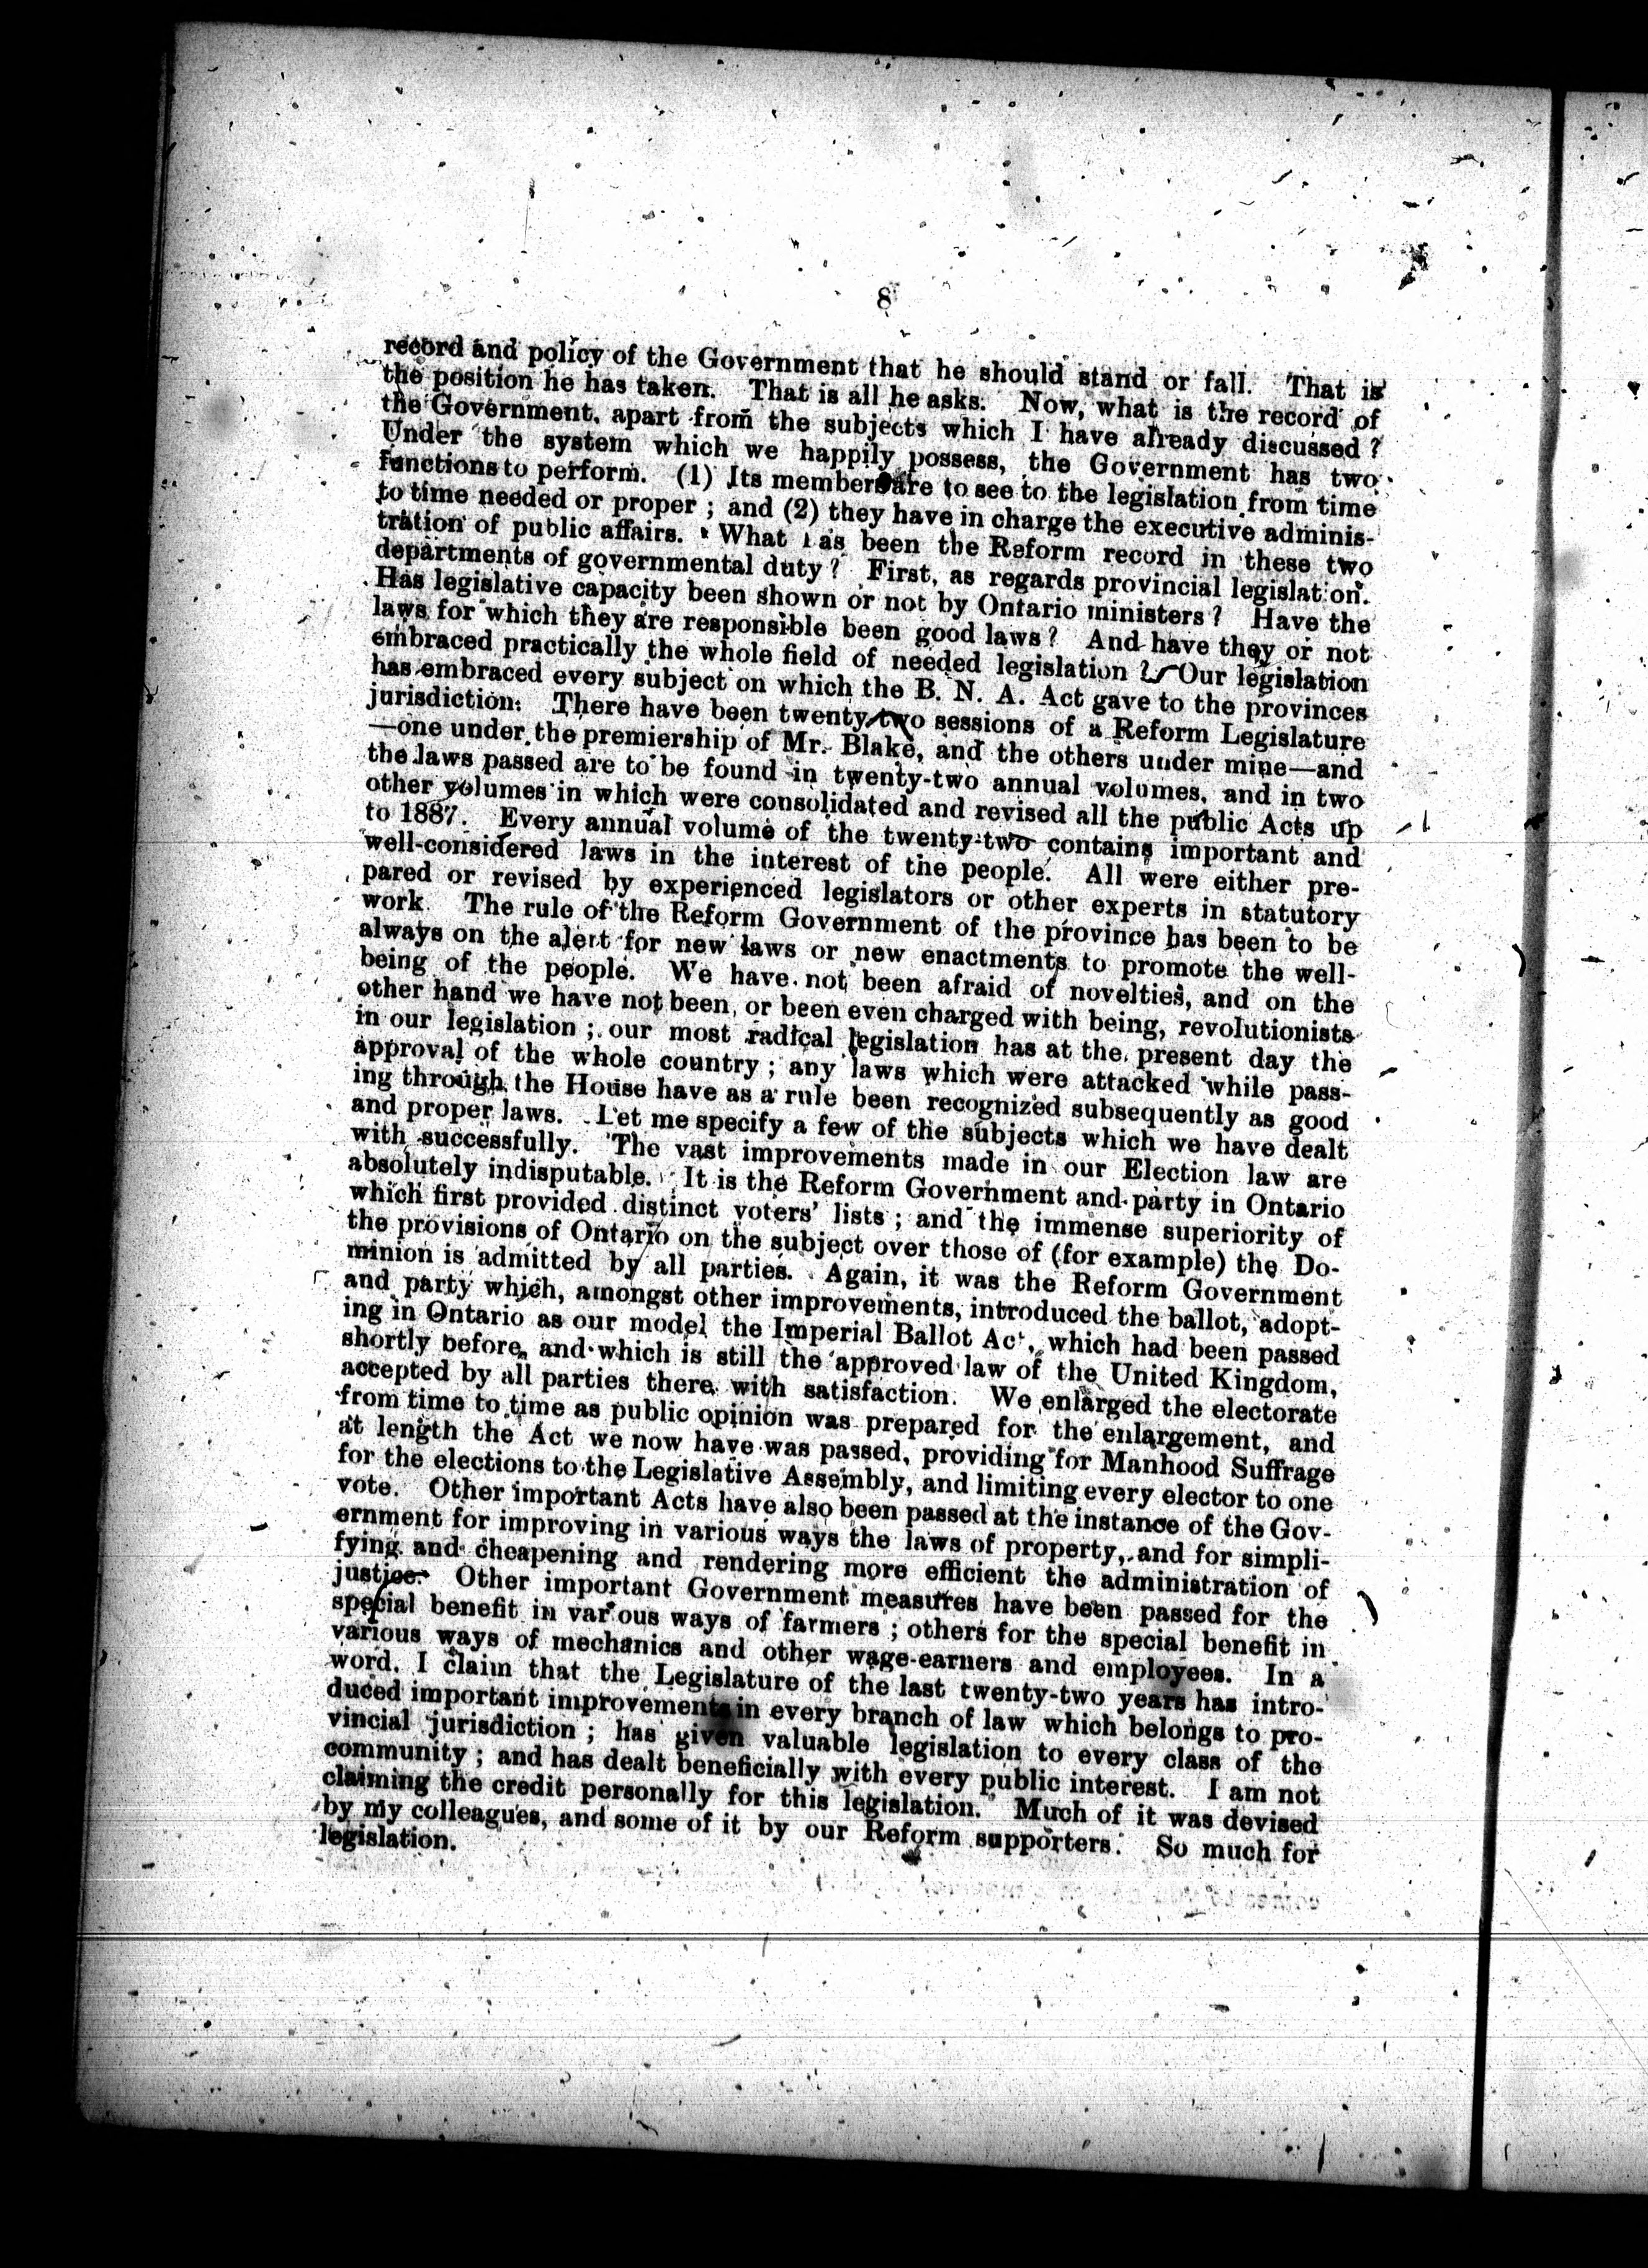 8
record and policy of the Government that he should stand or fall. That is
the position he has taken. That is all he asks. Now, what is the record of
the Government, apart from the subjects which I have already discussed?
Under the system which we happily possess, the Government has two
functions to perform. (1) Its members are to see to the legislation from time
to time needed or proper; and (2) they have in charge the executive adminis-
tration of public affairs. What has been the Reform record in these two
departments of governmental duty? First, as regards provincial legislation.
Has legislative capacity been shown or not by Ontario ministers? Have the
laws for which they are responsible been good laws? And have they or not
embraced practically the whole field of needed legislation? Our legislation
has embraced every subject on which the B. N. A. Act gave to the provinces
jurisdiction. There have been twenty-two sessions of a Reform Legislature
—one under the premiership of Mr. Blake, and the others under mine—and
the laws passed are to be found in twenty-two annual volumes, and in two
other volumes in which were consolidated and revised all the public Acts up
to 1887. Every annual volume of the twenty-two contains important and
well-considered laws in the interest of the people. All were either pre-
pared or revised by experienced legislators or other experts in statutory
work. The rule of the Reform Government of the province has been to be
always on the alert for new laws or new enactments to promote the well-
being of the people. We have not been afraid of novelties, and on the
other hand we have not been, or been even charged with being, revolutionists
in our legislation; our most radical legislation has at the present day the
approval of the whole country; any laws which were attacked while pass-
ing through the House have as a rule been recognized subsequently as good
and proper laws. Let me specify a few of the subjects which we have dealt
with successfully. The vast improvements made in our Election law are
absolutely indisputable. It is the Reform Government and party in Ontario
which first provided distinct voters' lists; and the immense superiority of
the provisions of Ontario on the subject over those of (for example) the Do-
minion is admitted by all parties. Again, it was the Reform Government
and party which, amongst other improvements, introduced the ballot, adopt-
ing in Ontario as our model the Imperial Ballot Act, which had been passed
shortly before, and which is still the approved law of the United Kingdom,
accepted by all parties there with satisfaction. We enlarged the electorate
from time to time as public opinion was prepared for the enlargement, and
at length the Act we now have was passed, providing for Manhood Suffrage
for the elections to the Legislative Assembly, and limiting every elector to one
vote. Other important Acts have also been passed at the instance of the Gov-
ernment for improving in various ways the laws of property, and for simpli-
fying and cheapening and rendering more efficient the administration of
justice. Other important Government measures have been passed for the
special benefit in various ways of farmers; others for the special benefit in
various ways of mechanics and other wage-earners and employees. In a
word, I claim that the Legislature of the last twenty-two years has intro-
duced important improvements in every branch of law which belongs to pro-
vincial jurisdiction; has given valuable legislation to every class of the
community; and has dealt beneficially with every public interest. I am not
claiming the credit personally for this legislation. Much of it was devised
by my colleagues, and some of it by our Reform supporters. So much for
legislation.